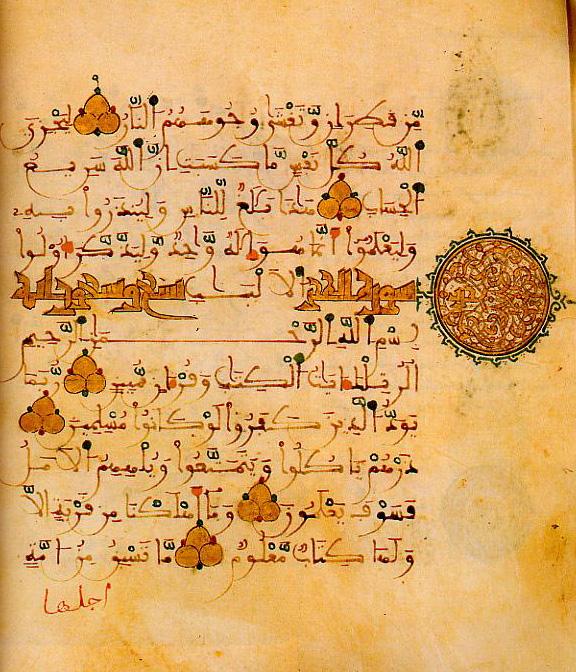 مِّن قَطِرَانٍ وَّتَغْشَىٰ وُجُوهَهُمُ النَّارُ لِيَجْزِيَ
اللَّهُ كُلَّ نَفْسٍ مَّا كَسَبَتِ اِنَّ اللَّهَ سَرِيعُ
الْحِسَابِ هَٰذَا بَلَٰغٌ لِّلنَّاسِ وَلِيُنذَرُوا بِهِ
وَلِيَعْلَمُوا أَنَّمَا هُوَ إِلَٰهٌ وَّاحِدٌ وَلِيَذَّكَّرَ أُوْلُوا
سورة الحجر الَالْبَٰبِ تسع وتسعون اية
بِسْمِ اللَّهِ الرَّحْمَٰنِ الرَّحِيمِ
الَر تِلْكَ ءَايَٰتُ الْكِتَٰبِ وَقُرْءَانٍ مُّبِينٍ رُّبَمَا
يَوَدُّ الَّذِينَ كَفَرُوا لَوْ كَانُوا مُسْلِمِينَ
ذَرْهُمْ يَاكُلُوا وَيَتَمَتَّعُوا وَيُلْهِهِمُ الَامَلُ
فَسَوْفَ يَعْلَمُونَ وَمَا أَهْلَكْنَا مِن قَرْيَةٍ اِلَّا
وَلَهَا كِتَابٌ مَّعْلُومٌ مَّا تَسْبِقُ مِنُ امَّةٍ
اجلها